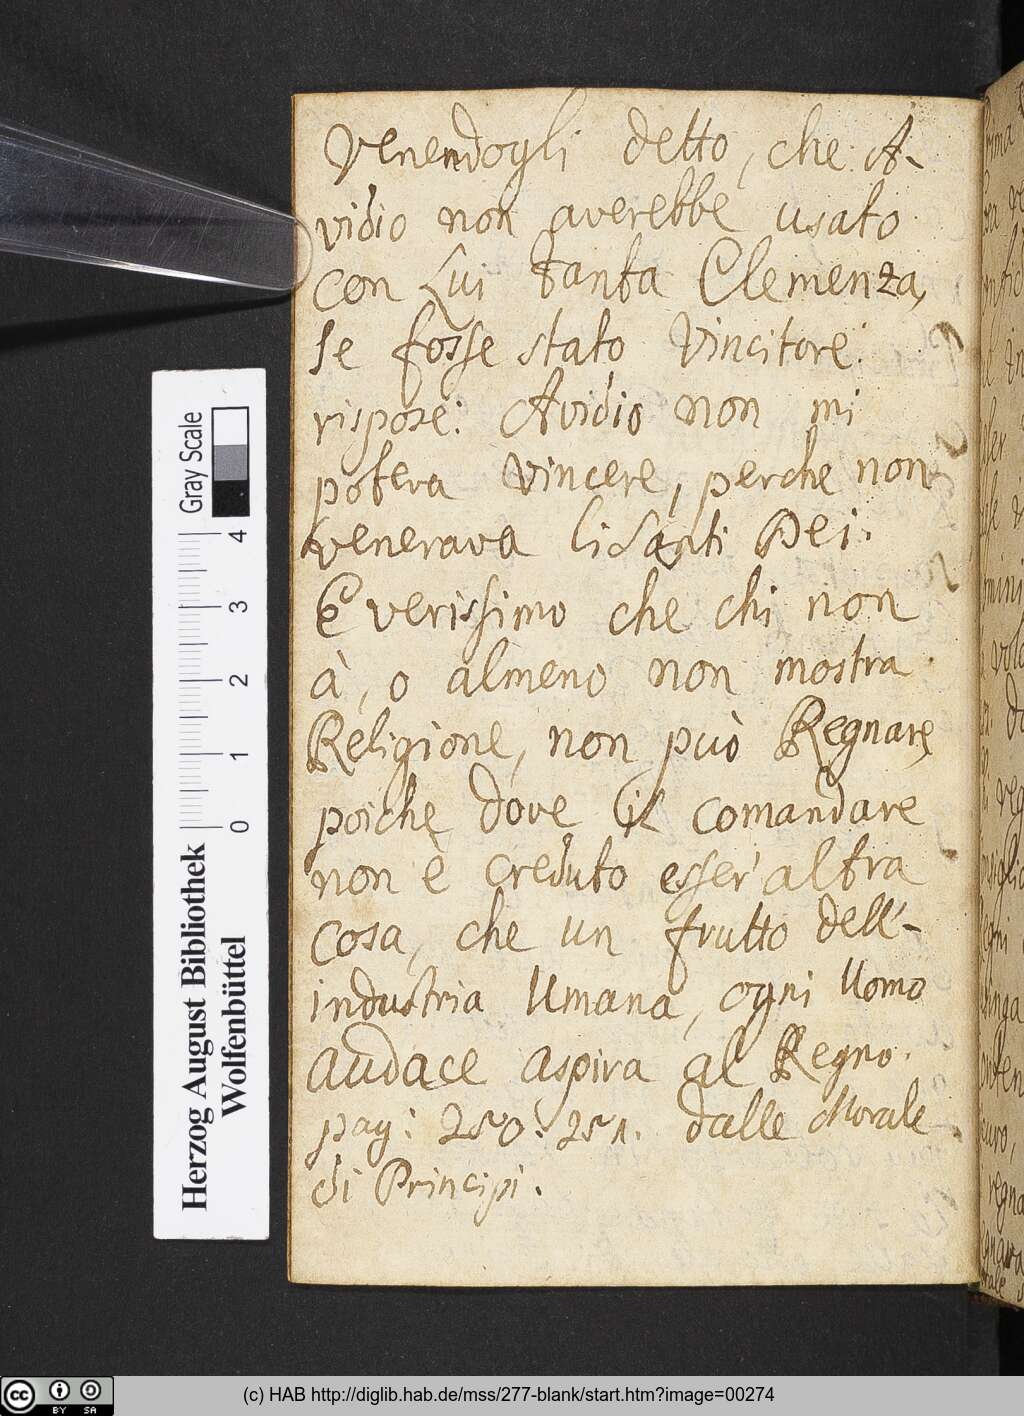 Venendogli detto, che A-
vidio non averebbe usato
con Lui tanta Clemenza,
se fosse stato Vincitore:
rispose: Avidio non mi
poteva Vincere, perche non
venerava li Santi Dei.
E verissimo che chi non
à, o almeno non mostra
Religione, non può Regnare,
poiche dove il comandare
non è creduto esser' altra
cosa, che un frutto dell'-
industria Umana, ogni Uomo
audace aspira al Regno.
pag: 250. 251. dalle Morale
di Principi.
Gray Scale
0 1 2 3 4
Herzog August Bibliothek
Wolfenbüttel
cc BY SA
(c) HAB http://diglib.hab.de/mss/277-blank/start.htm?image=00274